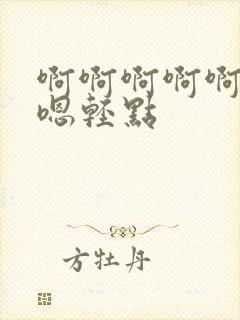 啊啊啊啊啊
嗯輕點
方牡丹